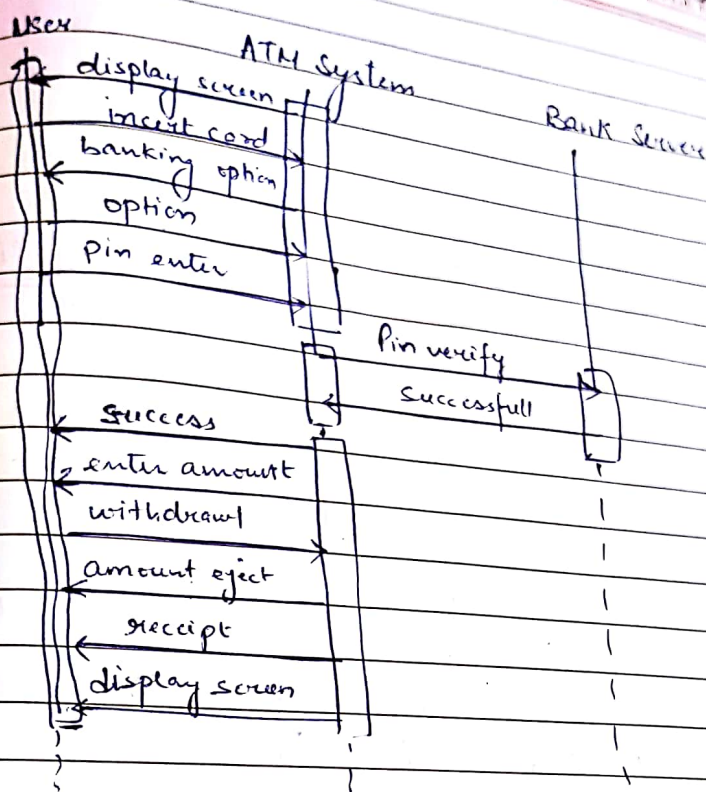 User
ATM System
Bank Server
display screen
insert card
banking option
option
Pin enter
Pin verify
Successfull
Success
enter amount
withdrawl
amount eject
receipt
display screen